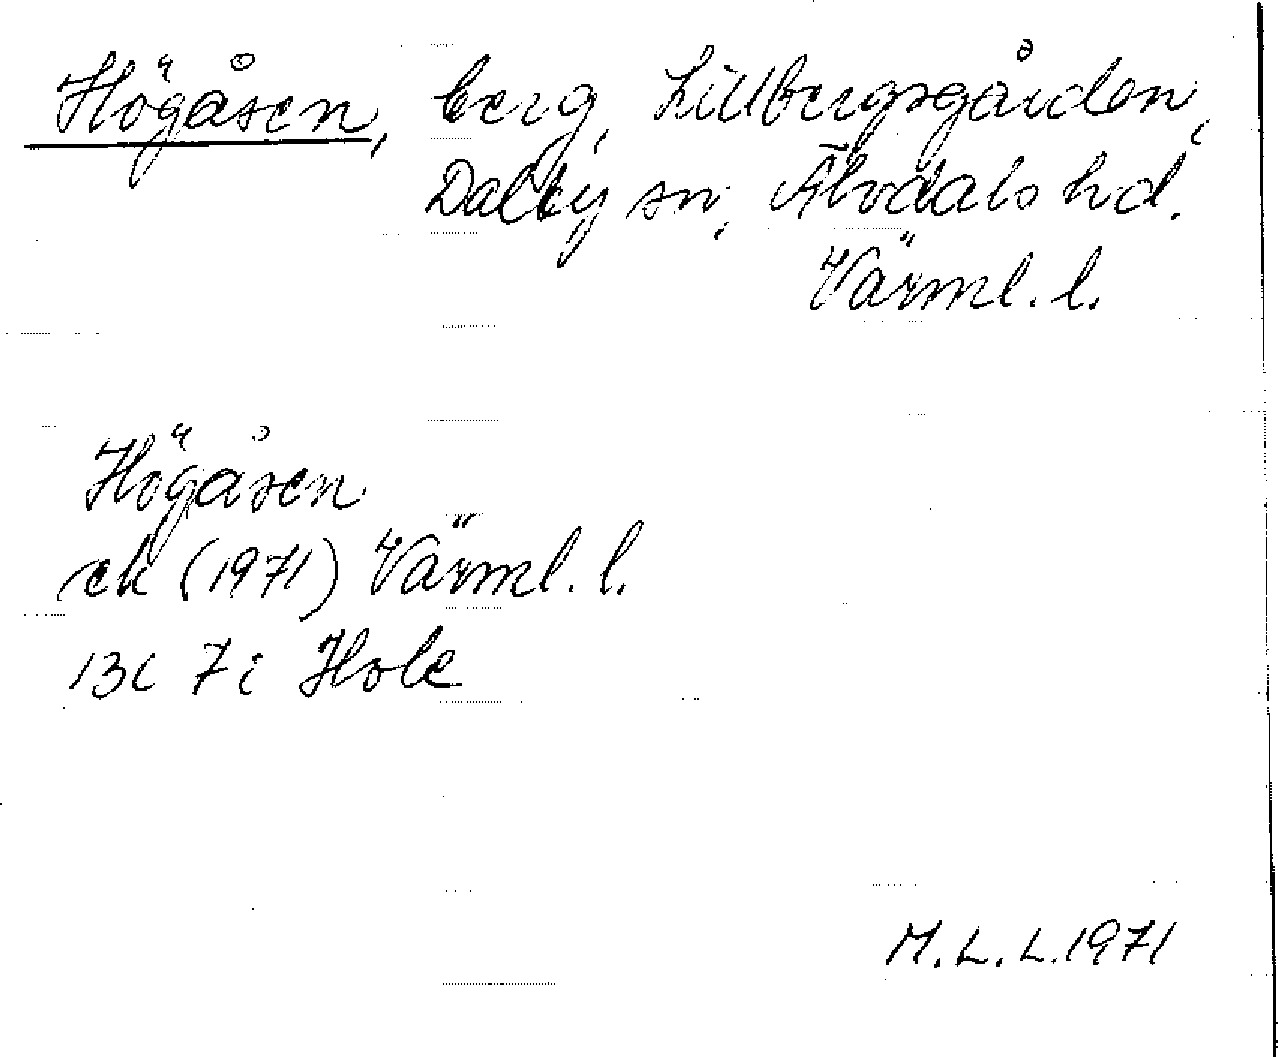 Högåsen, berg, Lillbergsgården,
Dalby sn, Älvdals hd.
Värml. l.
Högåsen
ek (1971) Värml. l.
13C 7i Hole
M.L.L. 1971